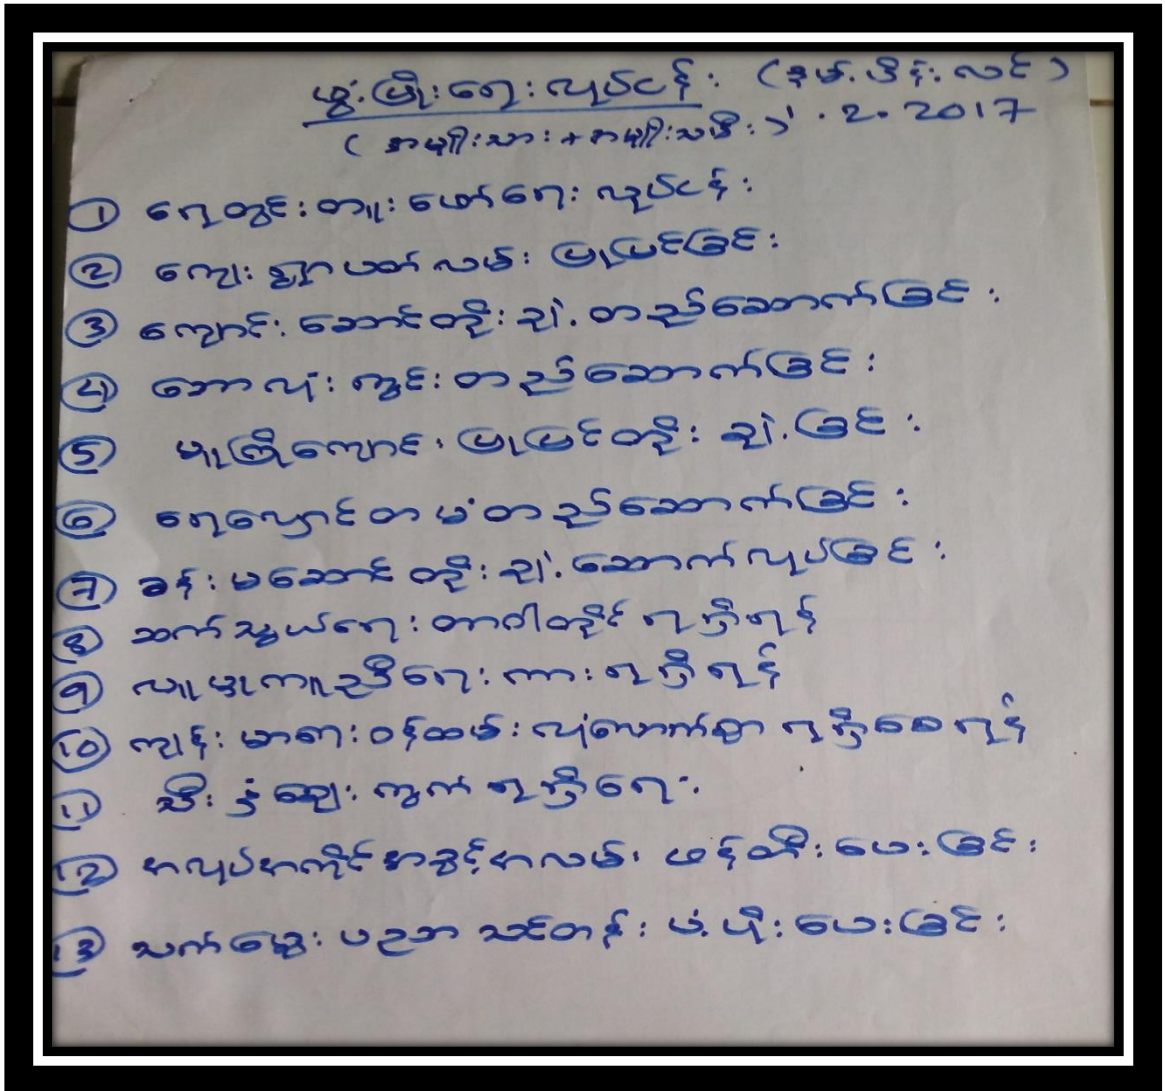 ဖွံ့ဖြိုးရေးလုပ်ငန်း (နမ့်ဖိန်းလင်)
(အမျိုးသား + အမျိုးသမီး) 1.2.2017
① ရေတွင်းတူးဖော်ရေးလုပ်ငန်း
② ကျေးရွာပတ်လမ်း ပြုပြင်ခြင်း
③ ကျောင်းဆောင်တိုးချဲ့တည်ဆောက်ခြင်း
④ ဘောလုံးကွင်းတည်ဆောက်ခြင်း
⑤ မူကြိုကျောင်းပြုပြင်တိုးချဲ့ခြင်း
⑥ ရေလှောင်တမံတည်ဆောက်ခြင်း
⑦ ခန်းမဆောင်တိုးချဲ့ဆောက်လုပ်ခြင်း
⑧ ဆက်သွယ်ရေးတာဝါတိုင်ရရှိရန်
⑨ လူမှုကူညီရေးကားရရှိရန်
⑩ ကျန်းမာရေးဝန်ထမ်းလုံလောက်စွာ ရရှိစေရန်
⑪ သီးနှံဈေးကွက်ရရှိရေး
⑫ အလုပ်အကိုင်အခွင့်အလမ်း ဖန်တီးပေးခြင်း
⑬ သက်မွေးပညာသင်တန်းပံ့ပိုးပေးခြင်း